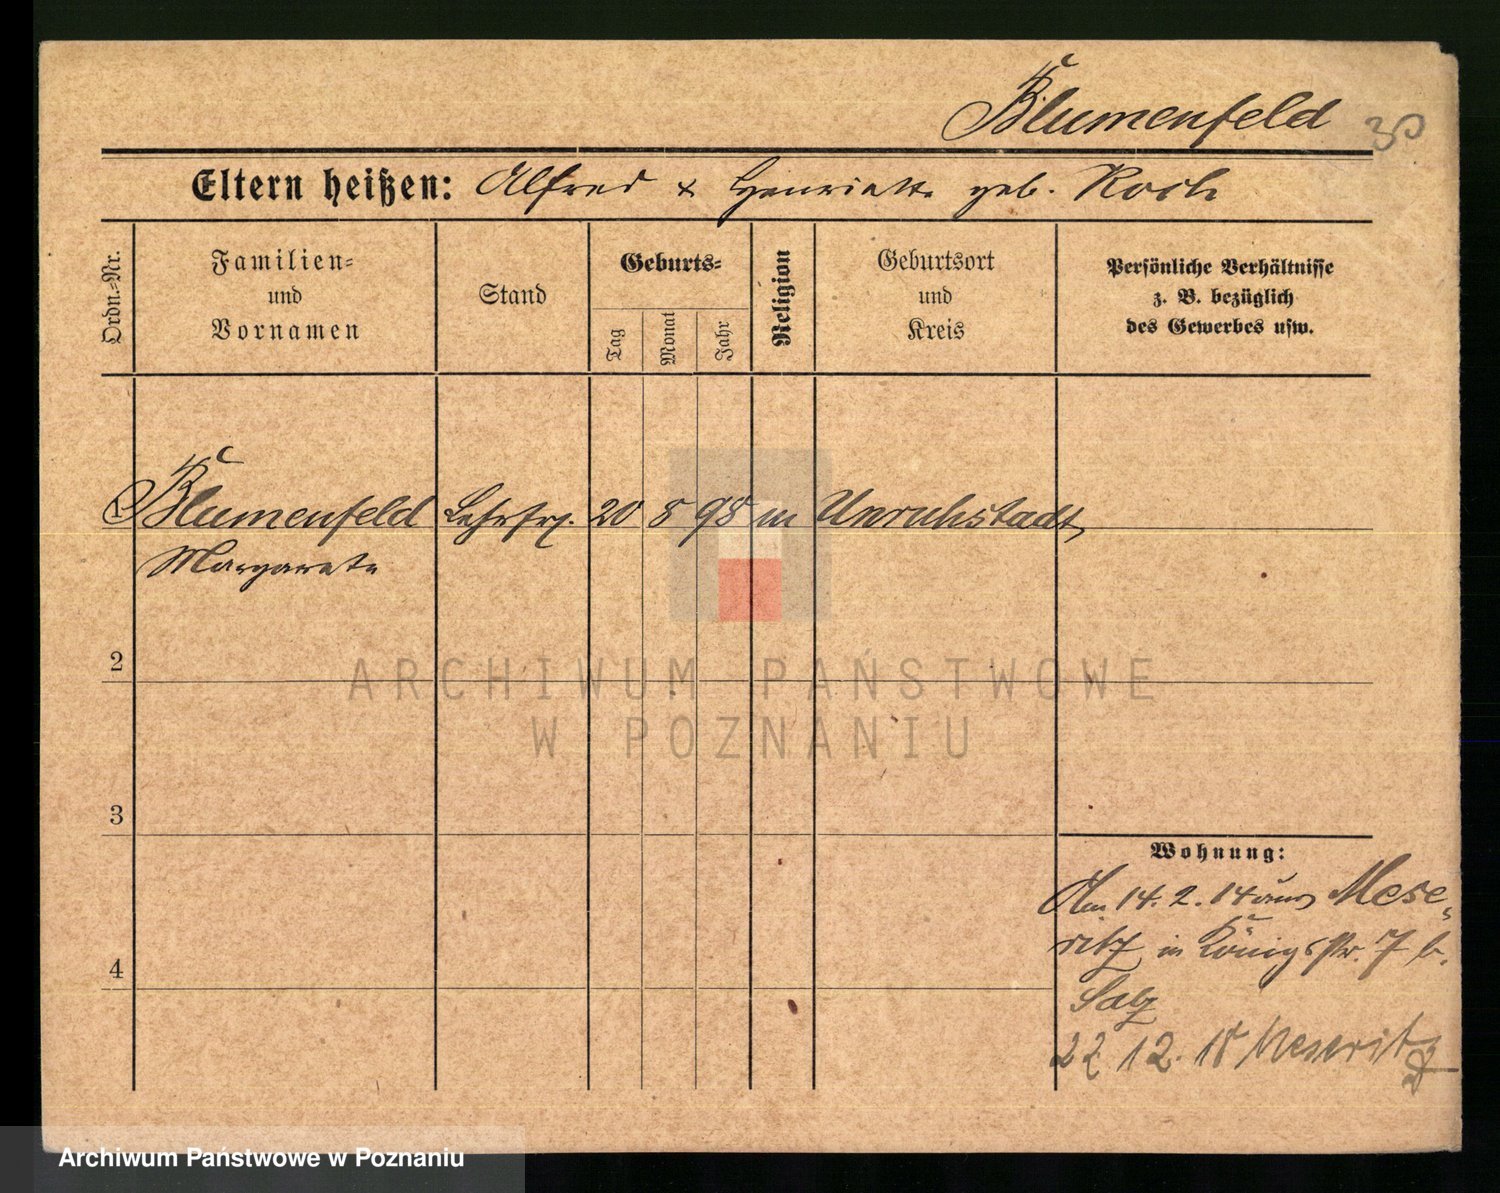 Blumenfeld 30
Eltern heißen: Alfred & Henriette geb. Koch
Ordn.-Nr.
Familien-
und
Vornamen
Stand
Geburts-
Tag
Monat
Jahr
Religion
Geburtsort
und
Kreis
Persönliche Verhältnisse
z. B. bezüglich
des Gewerbes usw.
1 Blumenfeld Lehrfrl. 20 8 98 m Unruhstadt
Margarete
2
ARCHIWUM PAŃSTWOWE
W POZNANIU
3
4
Wohnung:
Am 14. 2. 14 aus Mese-
ritz in Königstr. 7 b.
Salz
22 12. 18 Meseritz
Archiwum Państwowe w Poznaniu